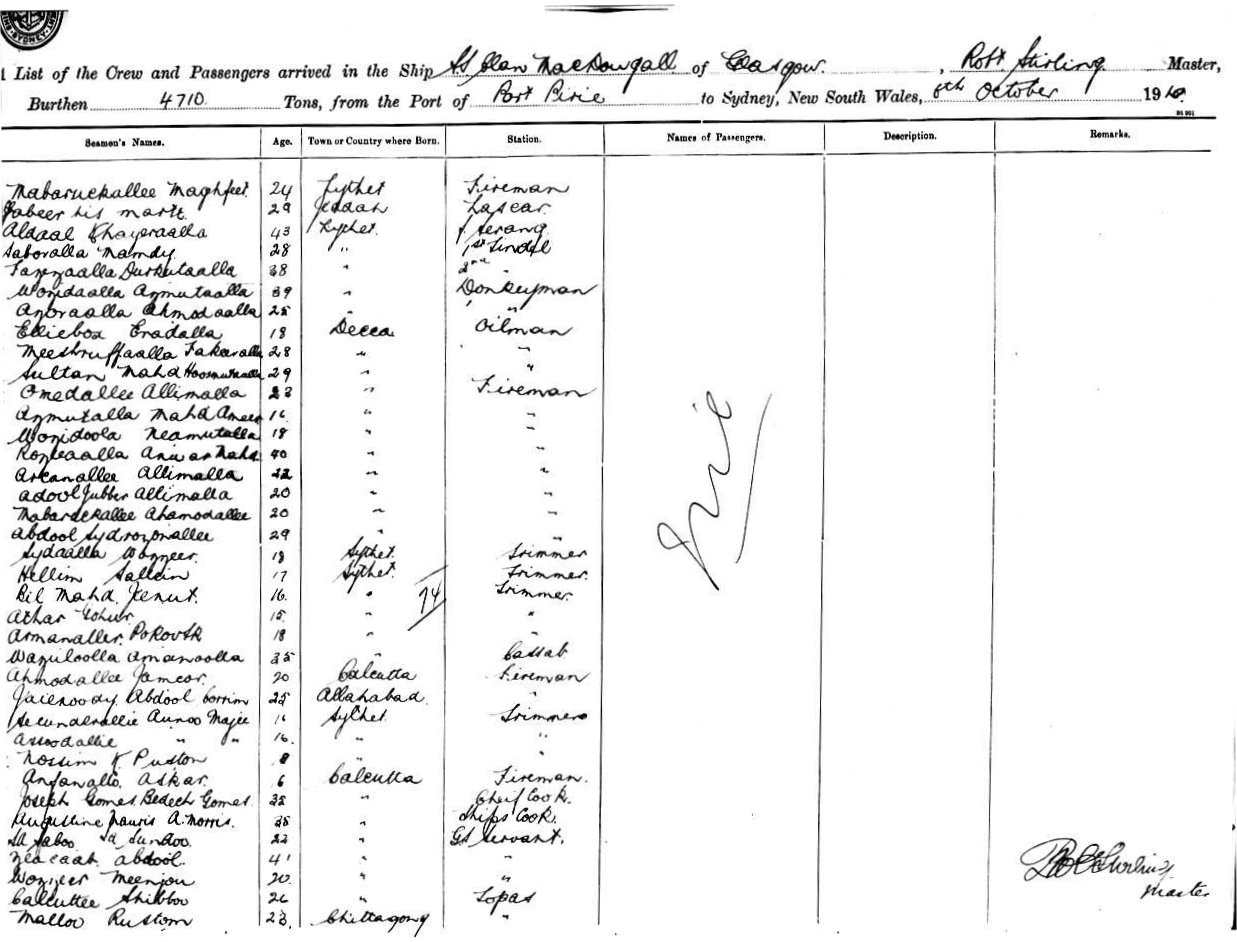 List of the Crew and Passengers arrived in the Ship SS Clan MacDougall of Glasgow, Robt Stirling Master,
Burthen 4710 Tons, from the Port of Port Pirie to Sydney, New South Wales, 8th October 191
Seamen's Names. Age. Town or Country where Born. Station. Names of Passengers. Description. Remarks.
Mabaruckallee Maghfeet 24 Sythet Fireman
Jabeer his mark 29 Jeddah Lascar
Aldaal Khayeraalla 43 Sythet Serang
Saboralla Mamdy 28 " 1st Tindel
Durkutaalla 38 " 2nd "
Wonidaalla Azmutaalla 39 " Donkeyman
Azoraalla Ahmodaalla 25 " "
Elliebox Eradalla 18 Decca Oilman
Meeshruffaalla 28 " "
Sultan Mahd 29 " "
Omedallee Allimalla 23 " Fireman
Azmutalla Mahd Ameer 16 " "
Wonidoola Neamutalla 18 " "
Anwar Mahd 40 " "
Arcanallee Allimalla 22 " "
Adool Jubber Allimalla 20 " "
Mabarockallee Ahamodallee 20 " "
Abdool Sydrozonallee 29 " "
Sydaalla Wozzeer 18 Sythet Trimmer
Hellim Sallein 17 Sythet Trimmer
Bil Mahd Jenut 16 " 74 Trimmer
Athar Gohur 15 " "
Armanallee 18 " "
Waziloolla Amanoolla 35 " Cassab
Ahmodallee Jameer 20 Calcutta Fireman
Jaienoody Abdool Corrim 25 Allahabad "
Secunderallie Aunoo Majee 16 Sylhet Trimmers
Assodallie " " 16 " "
Nossim K Puston 8 "
Anfanallo Askar 6 Calcutta Fireman
Joseph Gomes Bedech Gomes 35 " Cheif Cook
Augustine A. Morris 38 " Ships Cook
Sk Saboo Sk Sundoo 22 " GS Servant
Abdool 41 " "
Wozzeer Meenjou 20 " "
Calcuttee Shibboo 26 " Topas
Malloo Rustom 23 Chittagong "
Nil
Stirling
Master